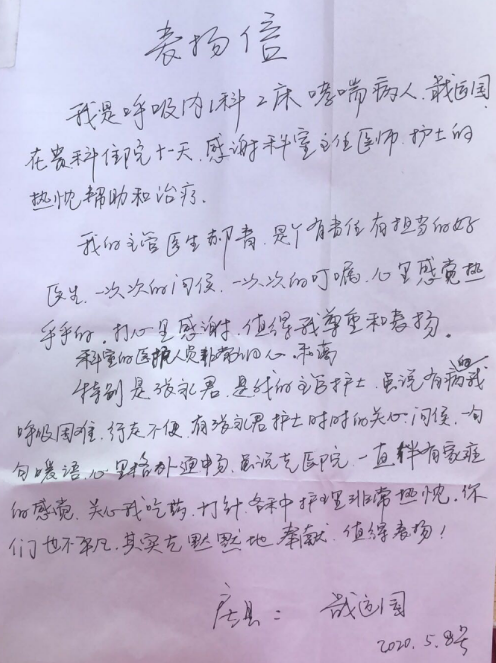 表扬信
我是呼吸内1科2床哮喘病人.战运国
在贵科住院十天.感谢科室主任医师.护士的
热忱帮助和治疗.
我的主管医生郝青.是个有责任有担当的好
医生.一次次的问候.一次次的叮嘱.心里感觉热
乎乎的.打心里感谢.值得我尊重和表扬.
科室的医护人员非常的心
特别是张永君.是我的主管护士.虽说有病的我
呼吸困难.行走不便.有张永君护士时时的关心.问侯.一句
句暖语.心里格外通畅.虽说在医院.一直样有家庭
的感觉.关心我吃药.打针.各种护理非常热忱.你
们也不平凡.其实在默默地奉献.值得表扬!
战运国
2020.5.8号